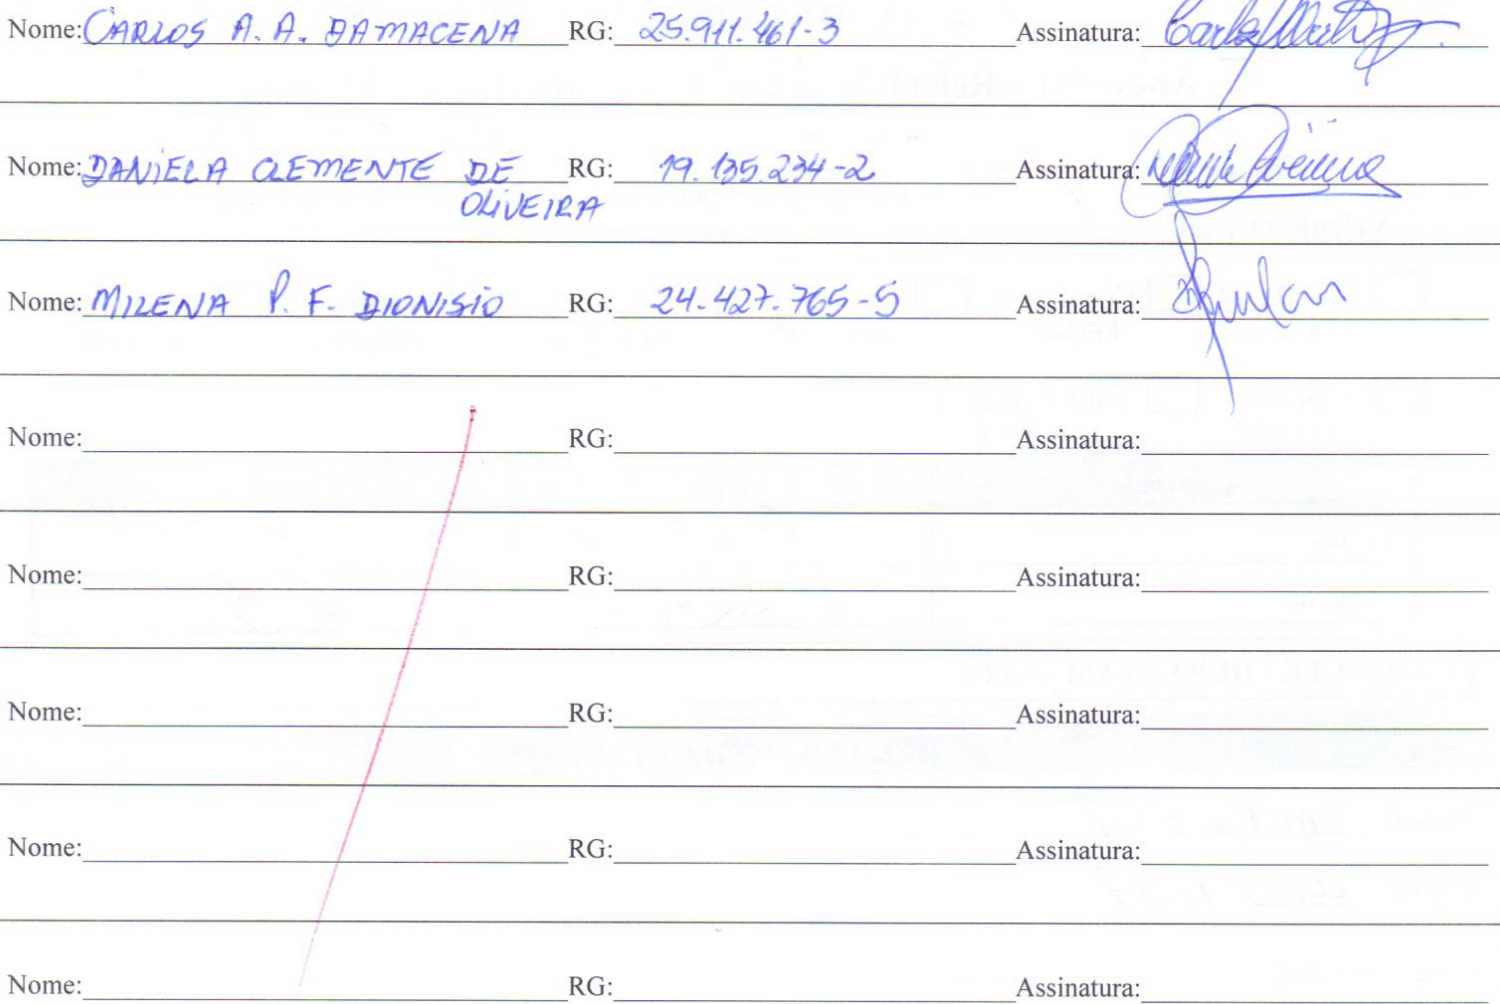 Nome: CARLOS A. A. DAMACENA RG: 25.911.461-3 Assinatura:
Nome: DANIELA CLEMENTE DE RG: 19.135.234-2 Assinatura:
OLIVEIRA
Nome: MILENA P. F. DIONISIO RG: 24.427.765-5 Assinatura:
Nome: RG: Assinatura:
Nome: RG: Assinatura:
Nome: RG: Assinatura:
Nome: RG: Assinatura:
Nome: RG: Assinatura: